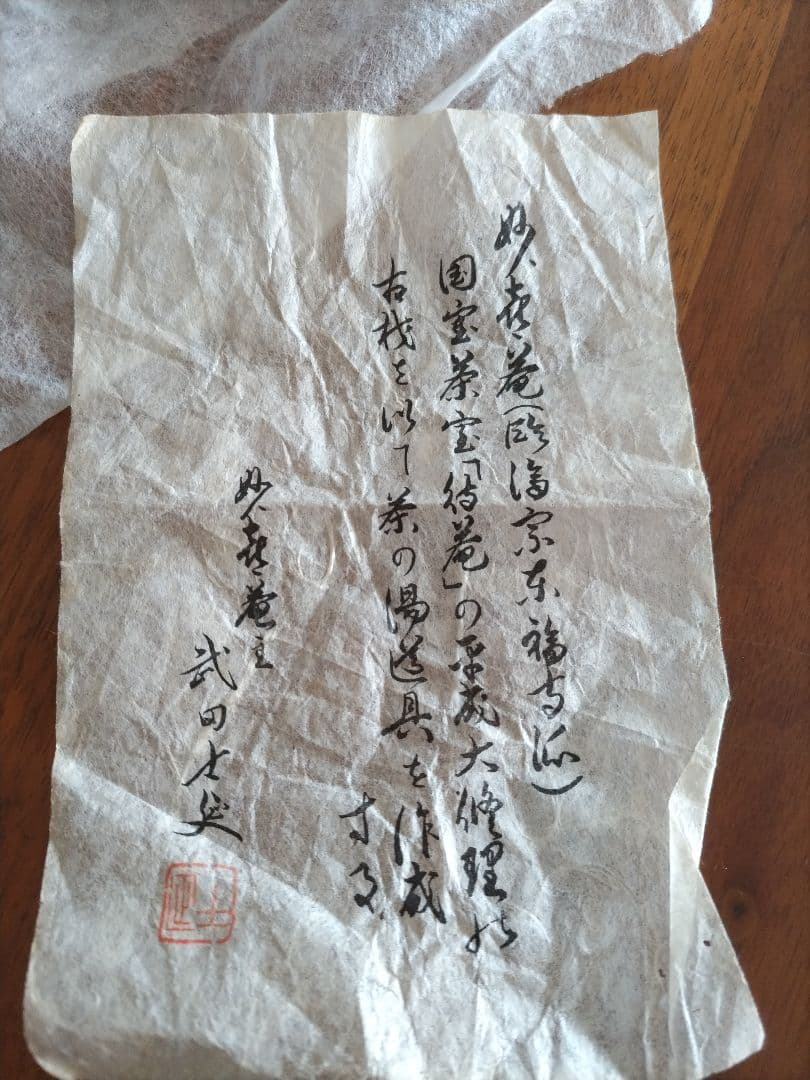 妙喜庵(臨済宗東福寺派)
国宝茶室「待庵」の平成大修理の
古材を以て茶の湯道具を作成
する
妙喜庵主
武田士延